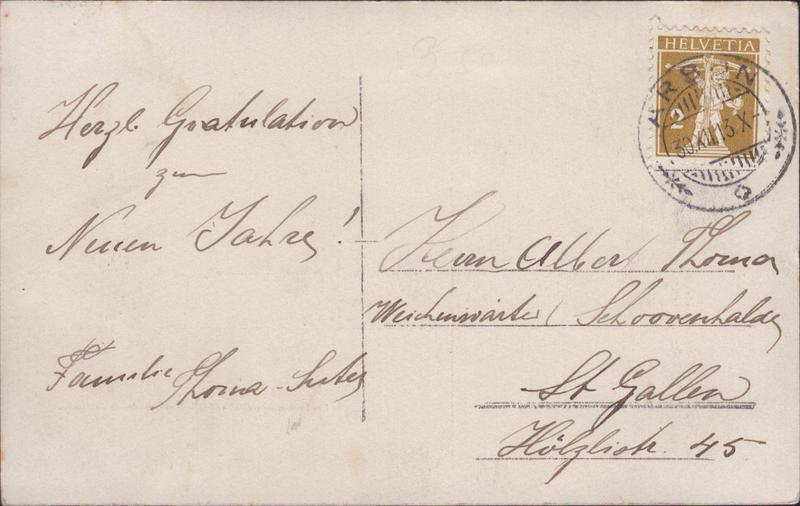 Herzl. Gratulation
zum
Neuen Jahre!
Familie Thoma-Suter
HELVETIA
2
ARBON
30.XII.13.X-
Herrn Albert Thoma
Weichenwärter Schoorenhalde
St Gallen
Hölzlistr. 45